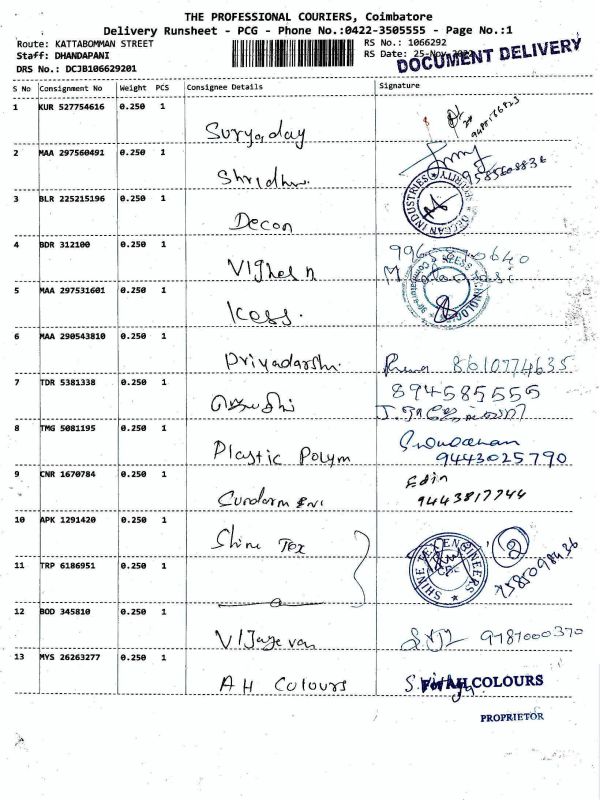 THE PROFESSIONAL COURIERS, Coimbatore
Delivery Runsheet - PCG - Phone No.:0422-3505555 - Page No.:1
Route: KATTABOMMAN STREET
RS No.: 1066292
Staff: DHANDAPANI
RS Date: 25-Nov-2022
DOCUMENT DELIVERY
DRS No.: DCJB106629201
S No Consignment No Weight PCS Consignee Details Signature
1 KUR 527754616 0.250 1 Suryaday
2 MAA 297560491 0.250 1 9585608836
3 BLR 225215196 0.250 1 Decon
DECCAN INDUSTRIES SECURITY
4 BDR 312100 0.250 1
5 MAA 297531601 0.250 1 Kess.
KESS TECHNOLOGI
6 MAA 290543810 0.250 1 Priyadarshi. 8610774635
7 TDR 5381338 0.250 1 894585555
8 TMG 5081195 0.250 1 Plastic Polym 9443025790
9 CNR 1670784 0.250 1 Edin
9443817744
10 APK 1291420 0.250 1 Shine Tex 2
SHINE TEX ENGINEERS
11 TRP 6186951 0.250 1
12 BOD 345810 0.250 1 9787000370
13 MYS 26263277 0.250 1 AH Colours
For AH COLOURS
PROPRIETOR